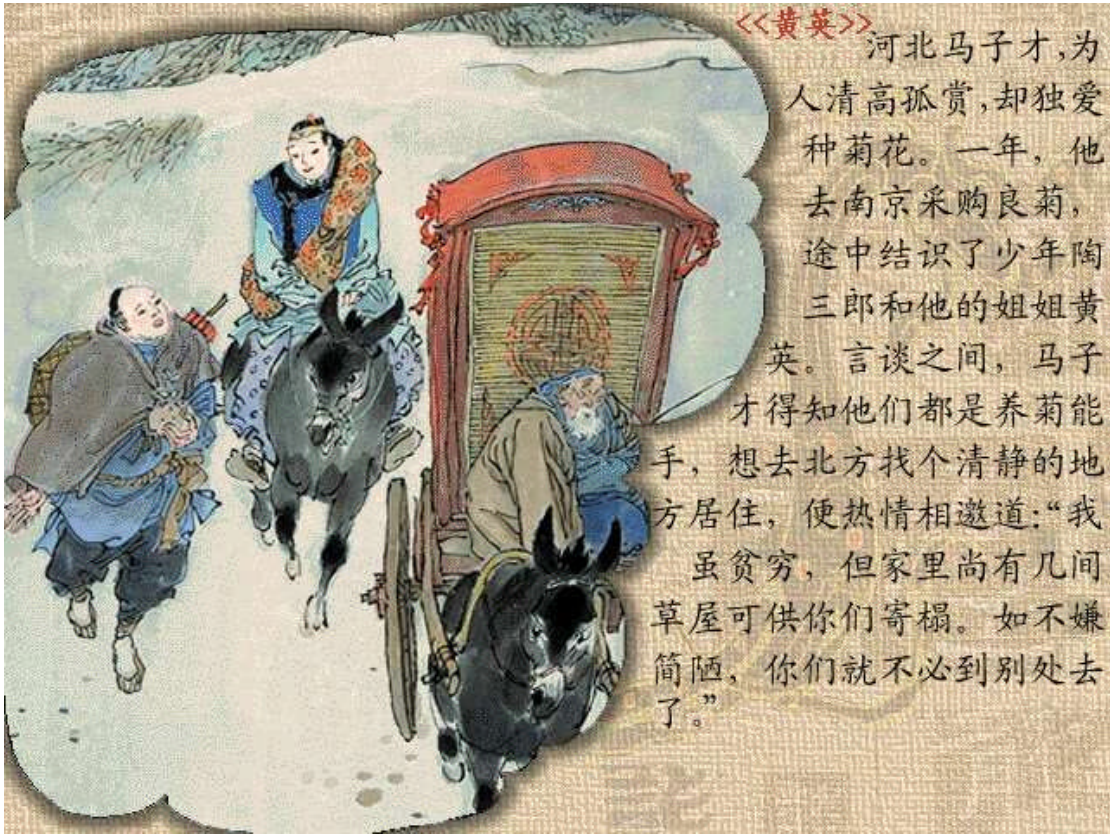 <<黄英>>
河北马子才,为
人清高孤赏,却独爱
种菊花。一年，他
去南京采购良菊，
途中结识了少年陶
三郎和他的姐姐黄
英。言谈之间，马子
才得知他们都是养菊能
手，想去北方找个清静的地
方居住，便热情相邀道:“我
虽贫穷，但家里尚有几间
草屋可供你们寄榻。如不嫌
简陋，你们就不必到别处去
了。”